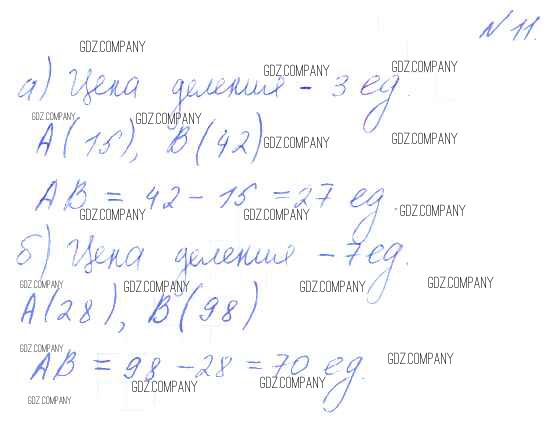 N 11.
GDZ.COMPANY
GDZ.COMPANY GDZ.COMPANY
а) Цена деления - 3 ед.
GDZ.COMPANY GDZ.COMPANY
А(15), В(42)
GDZ.COMPANY GDZ.COMPANY
АВ = 42 - 15 = 27 ед.
GDZ.COMPANY GDZ.COMPANY GDZ.COMPANY
б) Цена деления - 7 ед.
GDZ.COMPANY GDZ.COMPANY GDZ.COMPANY GDZ.COMPANY
А(28), В(98)
GDZ.COMPANY GDZ.COMPANY
АВ = 98 - 28 = 70 ед.
GDZ.COMPANY GDZ.COMPANY
GDZ.COMPANY